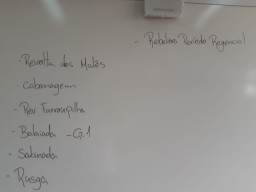 - Rebeliões Período Regencial
· Revolta dos Malês
· Cabanagem
· Rev. Farroupilha
· Balaiada - G.1
· Sabinada
· Rusga